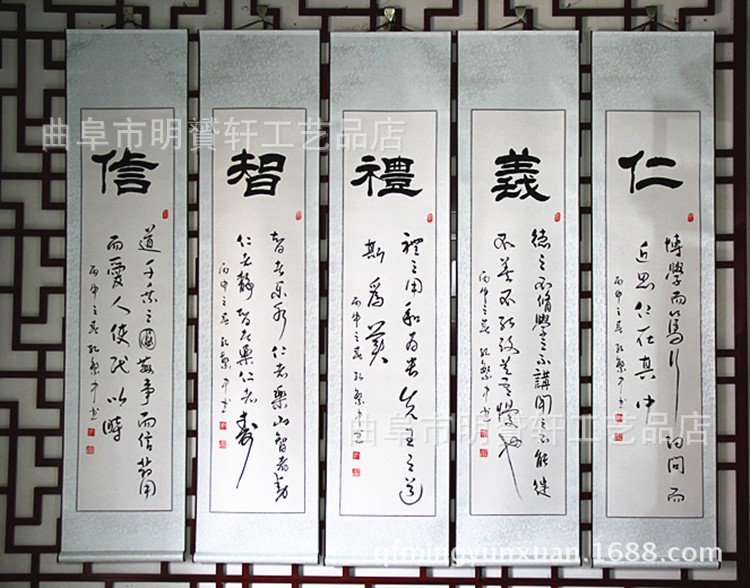 曲阜市明赟轩工艺品店
仁
博學而篤志切問而
近思仁在其中
丙申之夏孔繁書
義
德之不修學之不講聞義不能徙
不善不能改是吾憂也
丙申之夏孔繁書
禮
禮之用和為貴先王之道
斯為美
丙申之夏孔繁書
智
智者樂水仁者樂山智者動
仁者靜智者樂仁者壽
丙申之夏孔繁書
信
道千乘之國敬事而信節用
而愛人使民以時
丙申之夏孔繁書
曲阜市明赟轩工艺品店
qfmingyunxuan.1688.com